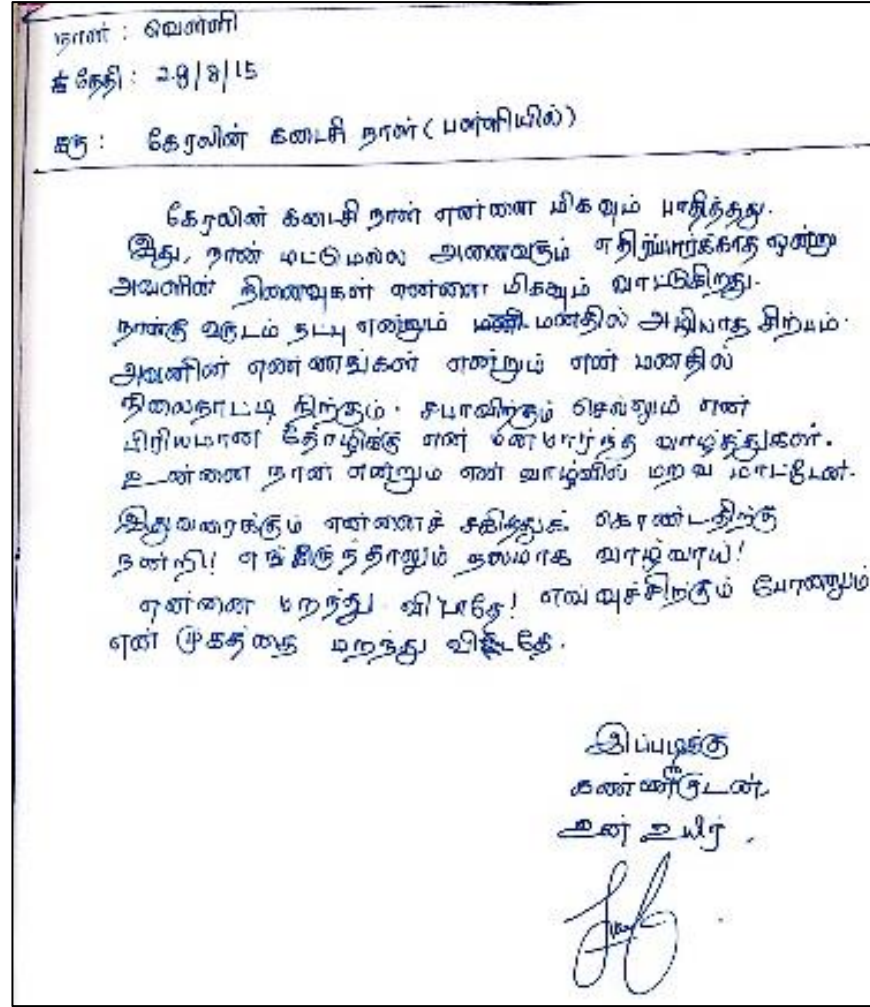 நாள் : வெள்ளி
தேதி : 28/8/15
கரு : கேரலின் கடைசி நாள் (பள்ளியில்)
கேரலின் கடைசி நாள் என்னை மிகவும் பாதித்தது.
இது, நான் மட்டுமல்ல அனைவரும் எதிர்பார்க்காத ஒன்று
அவளின் நினைவுகள் என்னை மிகவும் வாட்டுகிறது.
நான்கு வருடம் நட்பு என்றும் மனதில் அழியாத சிற்பம்.
அவளின் எண்ணங்கள் என்றும் என் மனதில்
நிலைநாட்டி நிற்கும். சபாவிற்கும் செல்லும் என்
பிரியமான தோழிக்கு என் மனமார்ந்த வாழ்த்துகள்.
உன்னை நான் என்றும் என் வாழ்வில் மறவ மாட்டேன்.
இதுவரைக்கும் என்னைச் சகித்துக் கொண்டதிற்கு
நன்றி! எங்கிருந்தாலும் நலமாக வாழ்வாய்!
என்னை மறந்து விடாதே! எவ்வுச்சிற்கும் போனாலும்
என் முகத்தை மறந்து விடாதே.
இப்படிக்கு
கண்ணீருடன்,
உன் உயிர்.